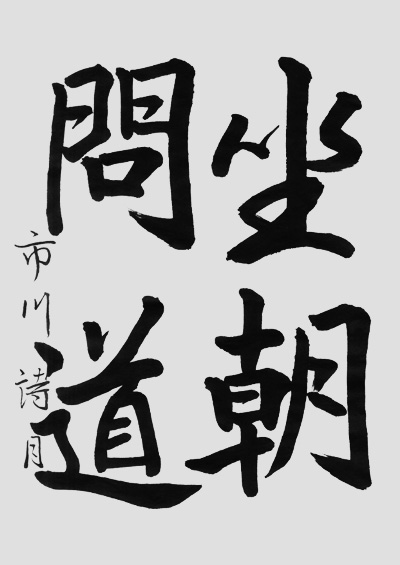 坐朝
問道
市川詩月